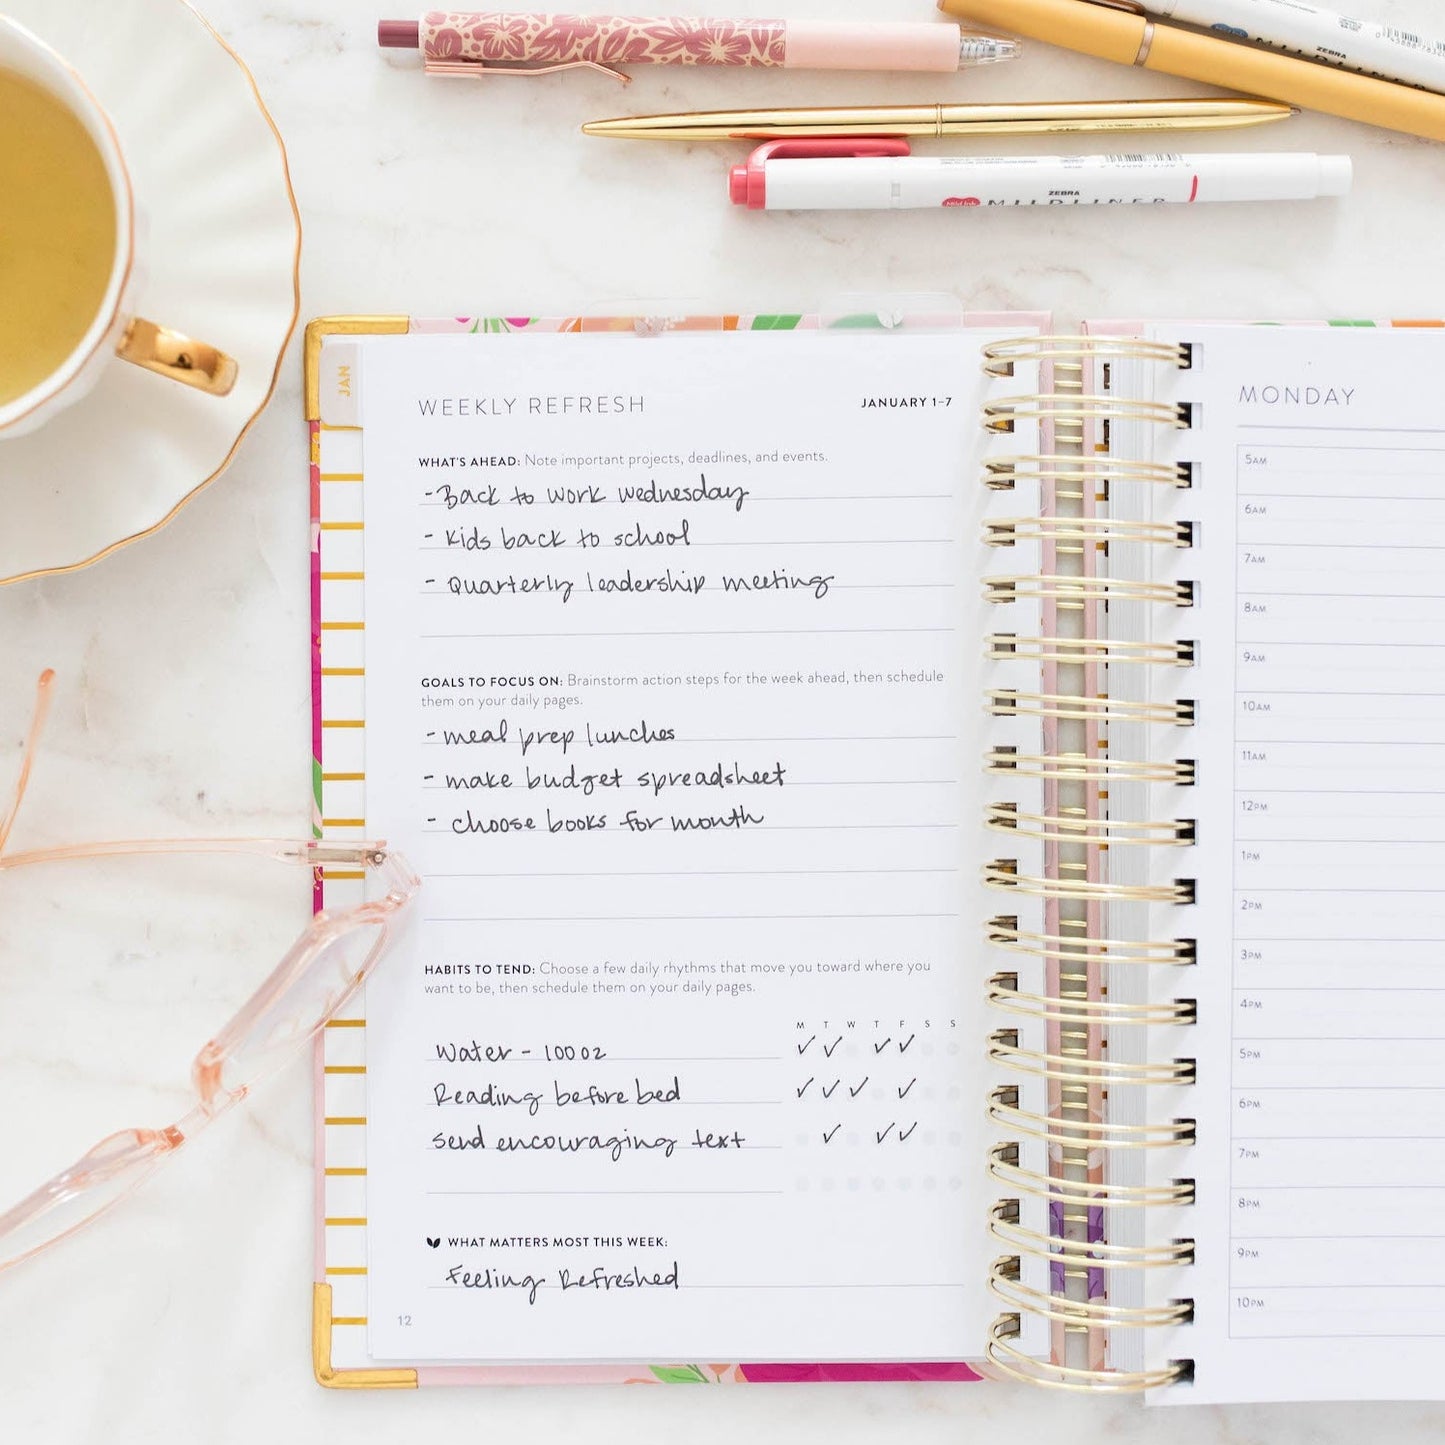 ZEBRA
ZEBRA
Mild Ink MILDLINER
JAN
WEEKLY REFRESH
JANUARY 1–7
WHAT'S AHEAD: Note important projects, deadlines, and events.
- Back to work Wednesday
- Kids back to school
- Quarterly leadership meeting
GOALS TO FOCUS ON: Brainstorm action steps for the week ahead, then schedule
them on your daily pages.
- meal prep lunches
- make budget spreadsheet
- choose books for month
HABITS TO TEND: Choose a few daily rhythms that move you toward where you
want to be, then schedule them on your daily pages.
M T W T F S S
Water - 100 oz ✓ ✓ ✓ ✓
Reading before bed ✓ ✓ ✓ ✓
Send encouraging text ✓ ✓ ✓
WHAT MATTERS MOST THIS WEEK:
Feeling Refreshed
12
MONDAY
5AM
6AM
7AM
8AM
9AM
10AM
11AM
12PM
1PM
2PM
3PM
4PM
5PM
6PM
7PM
8PM
9PM
10PM